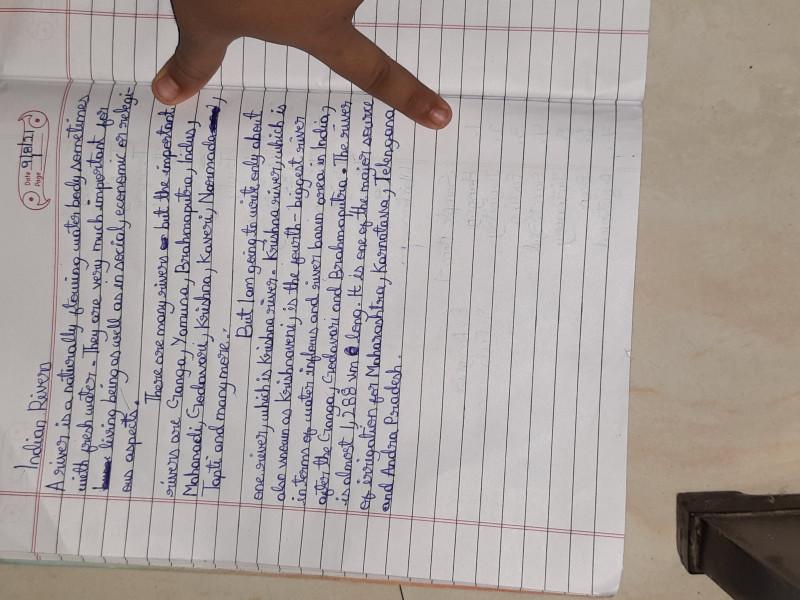 Date 9/8/21
Page
Indian Rivers
A river is a naturally flowing water body sometimes
with fresh water. They are very much important for
living being as well as in social, economic or relegi-
ous aspects.
There are many rivers but the important
rivers are Ganga, Yamuna, Brahmaputra, Indus,
Mahanadi, Godavari, Krishna, Kaveri, Narmada,
Tapti and many more.
But I am going to write only about
one river, which is Krishna river. Krishna river, which is
also known as Krishnaveni, is the fourth-biggest river
in terms of water inflows and river basin area in India,
after the Ganga, Godavari and Brahmaputra. The river
is almost 1,288 km long. It is one of the major source
of irrigation for Maharashtra, Karnataka, Telengana
and Andra Pradesh.